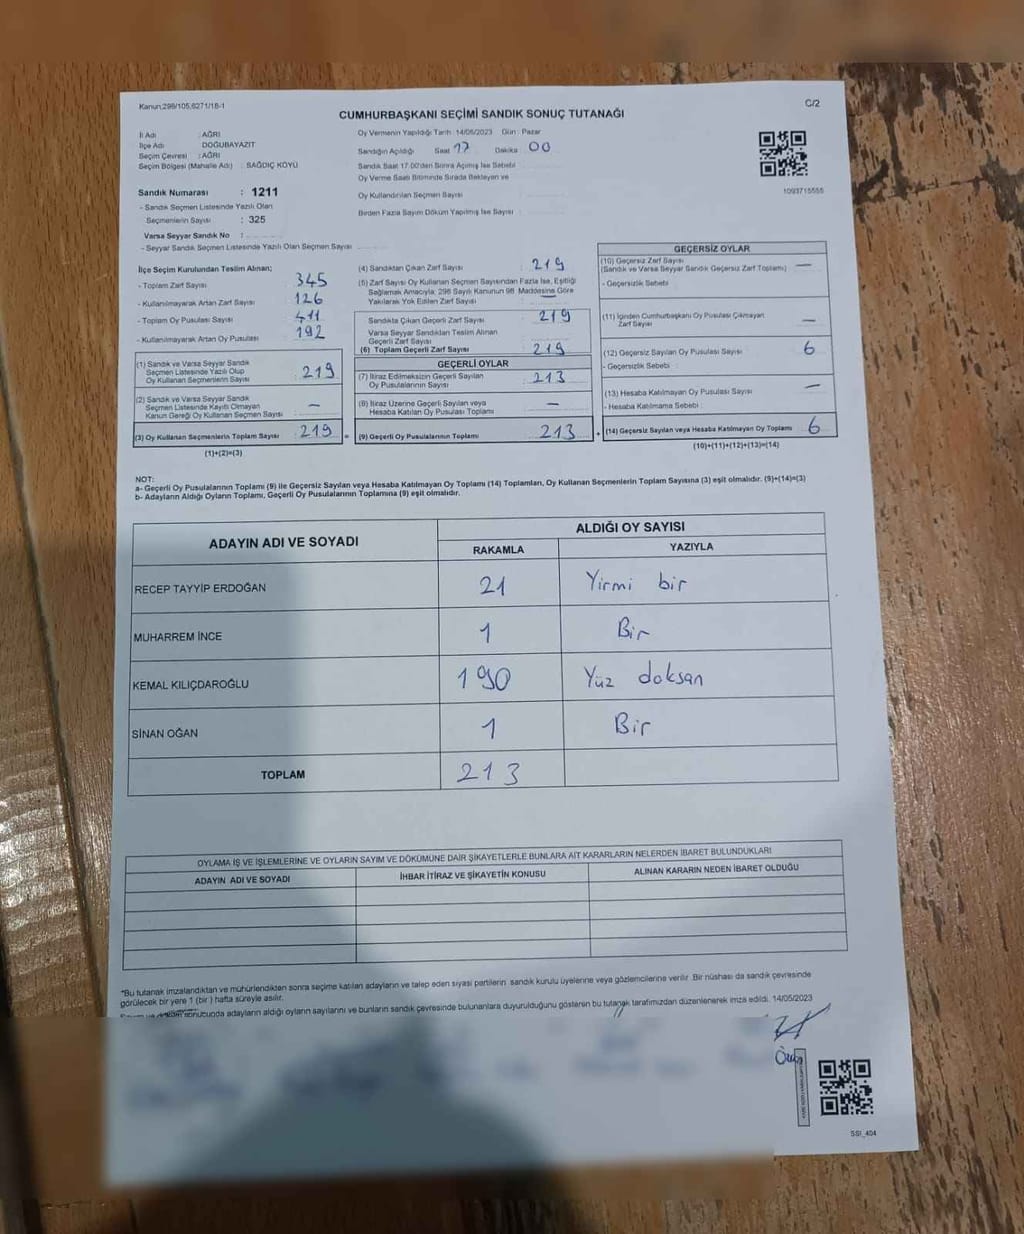 Kanun,298/105,6271/18-1
C/2
CUMHURBAŞKANI SEÇİMİ SANDIK SONUÇ TUTANAĞI
İl Adı : AĞRI
İlçe Adı DOĞUBAYAZIT
Seçim Çevresi : AĞRI
Seçim Bölgesi (Mahalle Adı) : SAĞDIÇ KÖYÜ
Oy Vermenin Yapıldığı Tarih: 14/05/2023 Gün : Pazar
Sandığın Açıldığı Saat 17 Dakika : 00
Sandık Saat 17:00'den Sonra Açılmış İse Sebebi
Oy Verme Saati Bitiminde Sırada Bekleyen ve
Oy Kullandırılan Seçmen Sayısı
Birden Fazla Sayım Döküm Yapılmış İse Sayısı :
1093715555
Sandık Numarası : 1211
- Sandık Seçmen Listesinde Yazılı Olan
Seçmenlerin Sayısı : 325
Varsa Seyyar Sandık No :
- Seyyar Sandık Seçmen Listesinde Yazılı Olan Seçmen Sayısı
İlçe Seçim Kurulundan Teslim Alınan;
- Toplam Zarf Sayısı 345
- Kullanılmayarak Artan Zarf Sayısı 126
- Toplam Oy Pusulası Sayısı 411
- Kullanılmayarak Artan Oy Pusulası 192
(1) Sandık ve Varsa Seyyar Sandık
Seçmen Listesinde Yazılı Olup
Oy Kullanan Seçmenlerin Sayısı : 219
(2) Sandık ve Varsa Seyyar Sandık
Seçmen Listesinde Kayıtlı Olmayan
Kanun Gereği Oy Kullanan Seçmen Sayısı : –
(3) Oy Kullanan Seçmenlerin Toplam Sayısı : 219 =
(1)+(2)=(3)
(4) Sandıktan Çıkan Zarf Sayısı : 219
(5) Zarf Sayısı Oy Kullanan Seçmen Sayısından Fazla İse, Eşitliği
Sağlamak Amacıyla; 298 Sayılı Kanunun 98. Maddesine Göre
Yakılarak Yok Edilen Zarf Sayısı : –
Sandıkta Çıkan Geçerli Zarf Sayısı : 219
Varsa Seyyar Sandıktan Teslim Alınan
Geçerli Zarf Sayısı
(6) Toplam Geçerli Zarf Sayısı : 219
GEÇERLİ OYLAR
(7) İtiraz Edilmeksizin Geçerli Sayılan
Oy Pusulalarının Sayısı : 213
(8) İtiraz Üzerine Geçerli Sayılan veya
Hesaba Katılan Oy Pusulası Toplamı : –
(9) Geçerli Oy Pusulalarının Toplamı : 213 +
GEÇERSİZ OYLAR
(10) Geçersiz Zarf Sayısı
(Sandık ve Varsa Seyyar Sandık Geçersiz Zarf Toplamı) : –
- Geçersizlik Sebebi :
(11) İçinden Cumhurbaşkanı Oy Pusulası Çıkmayan
Zarf Sayısı –
(12) Geçersiz Sayılan Oy Pusulası Sayısı 6
- Geçersizlik Sebebi :
(13) Hesaba Katılmayan Oy Pusulası Sayısı –
- Hesaba Katılmama Sebebi :
(14) Geçersiz Sayılan veya Hesaba Katılmayan Oy Toplamı : 6
(10)+(11)+(12)+(13)=(14)
NOT:
a- Geçerli Oy Pusulalarının Toplamı (9) ile Geçersiz Sayılan veya Hesaba Katılmayan Oy Toplamı (14) Toplamları, Oy Kullanan Seçmenlerin Toplam Sayısına (3) eşit olmalıdır. (9)+(14)=(3)
b- Adayların Aldığı Oyların Toplamı, Geçerli Oy Pusulalarının Toplamına (9) eşit olmalıdır.
ADAYIN ADI VE SOYADI ALDIĞI OY SAYISI
RAKAMLA YAZIYLA
RECEP TAYYİP ERDOĞAN 21 Yirmi bir
MUHARREM İNCE 1 Bir
KEMAL KILIÇDAROĞLU 190 Yüz doksan
SİNAN OĞAN 1 Bir
TOPLAM 213
OYLAMA İŞ VE İŞLEMLERİNE VE OYLARIN SAYIM VE DÖKÜMÜNE DAİR ŞİKAYETLERLE BUNLARA AİT KARARLARIN NELERDEN İBARET BULUNDUKLARI
ADAYIN ADI VE SOYADI İHBAR İTİRAZ VE ŞİKAYETİN KONUSU ALINAN KARARIN NEDEN İBARET OLDUĞU
*Bu tutanak imzalandıktan ve mühürlendikten sonra seçime katılan adayların ve talep eden siyasi partilerin sandık kurulu üyelerine veya gözlemcilerine verilir. Bir nüshası da sandık çevresinde
görülecek bir yere 1 (bir) hafta süreyle asılır.
sonucunda adayların aldığı oyların sayılarını ve bunların sandık çevresinde bulunanlara duyurulduğunu gösteren bu tutanak tarafımızdan düzenlenerek imza edildi. 14/05/2023
SSI_404